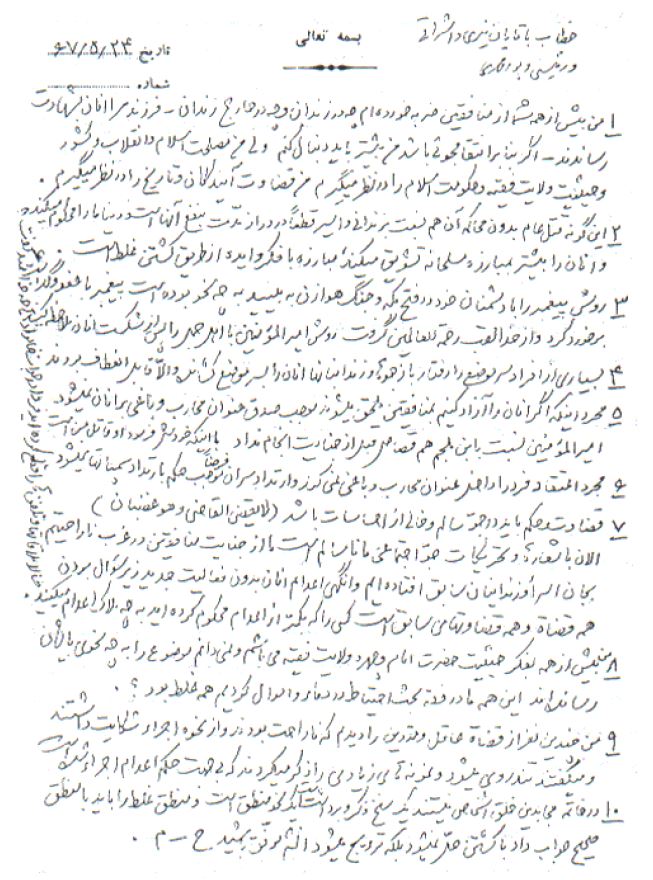 خطاب به آقایان نیری و اشراقی
و رئیسی و پورمحمدی
بسمه تعالی
تاریخ ۶۷/۵/۲۴
شماره
۱ من بیش از همه شما از منافقین ضربه خورده‌ام چه در زندان و چه در خارج زندان - فرزند مرا آنان بشهادت
رساندند - اگر بنا بر انتقامجوئی باشد من بیشتر باید دنبال کنم ولی من مصلحت اسلام و انقلاب و کشور
و حیثیت ولایت فقیه و حکومت اسلام را در نظر میگیرم من قضاوت آیندگان و تاریخ را در نظر میگیرم .
۲ این گونه قتل عام بدون محاکمه آن هم نسبت بزندانی و اسیر قطعاً در دراز مدت بنفع آنها است و دنیا ما را محکوم میکند
و آنان را بیشتر بمبارزه مسلحانه تشویق میکند، مبارزه با فکر و ایده از طریق کشتن غلط است .
۳ روش پیغمبر را با دشمنان خود در فتح مکه و جنگ هوازن به بینید به چه نحو بوده است پیغمبر با عفو و گذشت
برخورد کرد و از خدا لقب رحمة للعالمین گرفت روش امیرالمؤمنین با اهل جمل را پس از شکست آنان ملاحظه کنید
۴ بسیاری از افراد سرموضع را رفتار بازجوها و زندانبانها آنان را بسرموضع کشانده والا قابل انعطاف بودند
۵ مجرد اینکه اگر آنان را آزاد کنیم بمنافقین ملحق میشوند موجب صدق عنوان محارب و باغی بر آنان نمیشود
امیرالمؤمنین نسبت به ابن ملجم هم قصاص قبل از جنایت انجام نداد با اینکه خودش فرمود او قاتل من است
۶ مجرد اعتقاد فرد را داخل عنوان محارب و باغی نمی کند و ارتداد سران فرضاً موجب حکم بارتداد سمپاتها نمیشود
۷ قضاوت و حکم باید در جو سالم و خالی از احساسات باشد (لا یقضی القاضی و هو غضبان)
الان با شعارها و تحریکات جو اجتماعی ما ناسالم است ما از جنایت منافقین در غرب ناراحتیم
بجان اسرا و زندانیان سابق افتاده‌ایم وانگهی اعدام آنان بدون فعالیت جدید زیر سؤال بردن
همه قضاة و همه قضاوتهای سابق است کسی را که بکمتر از اعدام محکوم کرده‌اید به چه ملاک اعدام میکنید
۸ من بیش از همه بفکر حیثیت حضرت امام و چهره ولایت فقیه می باشم و نمی دانم موضوع را به چه نحوی بایشان
رسانده‌اند این همه ما در فقه بحث احتیاط در دماء و اموال کردیم همه غلط بود ؟ .
۹ من چندین نفر از قضاة عاقل و متدین را دیدم که ناراحت بودند و از نحوه اجراء شکایت داشتند
و میگفتند تندروی میشود و نمونه‌های زیادی را ذکر میکردند که بی جهت حکم اعدام اجراء شده است
۱۰ در خاتمه مجاهدین خلق اشخاص نیستند یک سنخ فکر و برداشت است یک نحو منطق است و منطق غلط را باید با منطق
صحیح جواب داد با کشتن حل نمیشود بلکه ترویج میشود انشاءالله موفق باشید ح - م .